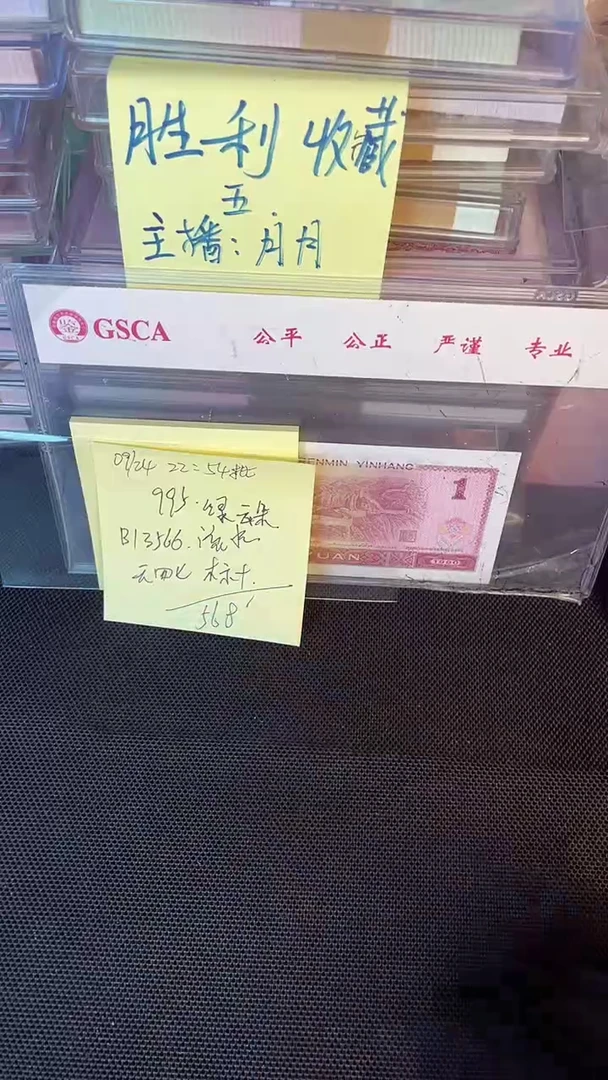 胜利收藏
五.
主播:月月
GSCA 公平 公正 严谨 专业
09/24 22:54
995.绿云朵
B13566.
无四七 标十.
568
RENMIN YINHANG
1
YUAN
1990